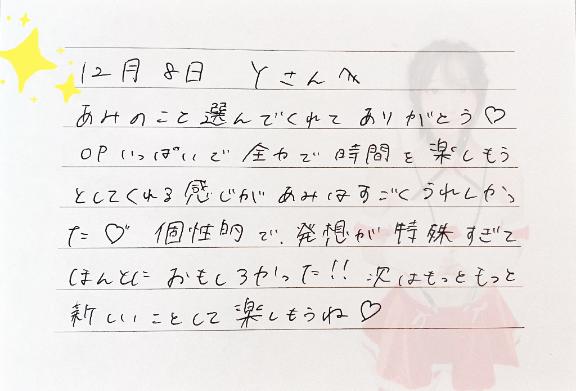 12月8日 Yさんへ
あみのこと選んでくれてありがとう♡
OPいっぱいで全力で時間を楽しもう
としてくれる感じがあみはすごくうれしかっ
た♡ 個性的で、発想が特殊すぎて
ほんとにおもしろかった!! 次はもっともっと
新しいことして楽しもうね♡